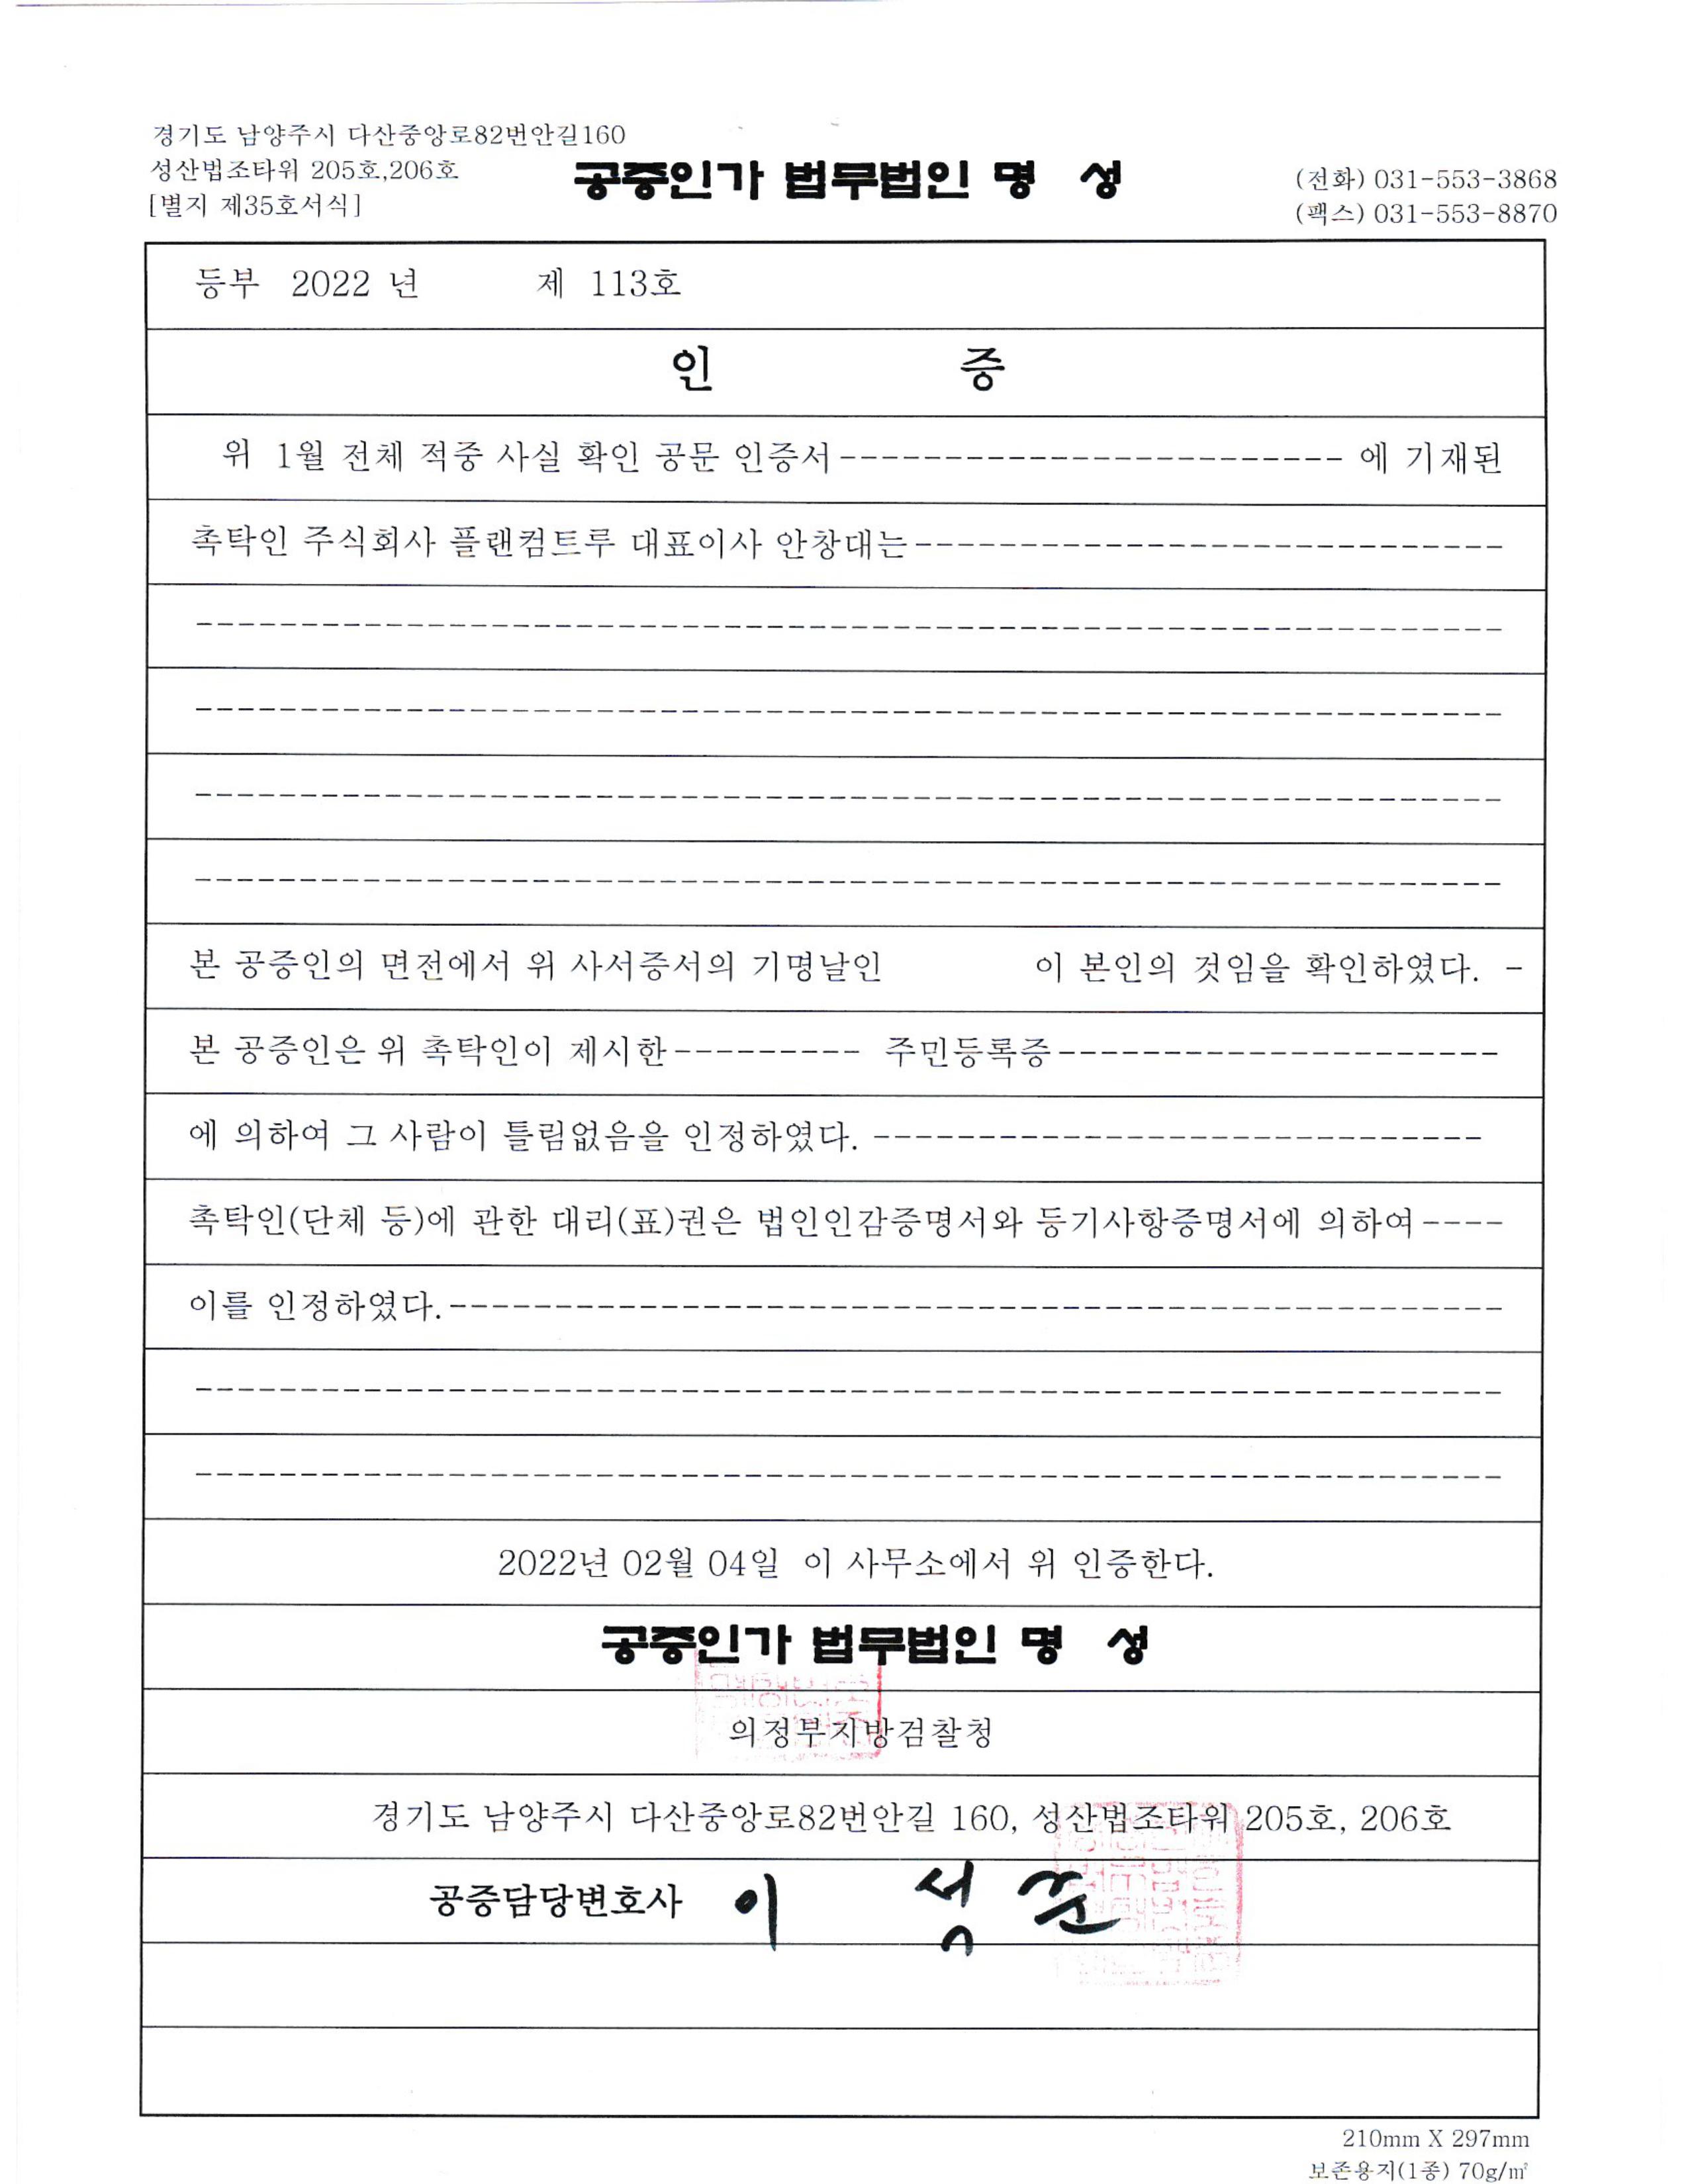 경기도 남양주시 다산중앙로82번안길160
성산법조타워 205호,206호
[별지 제35호서식]
공증인가 법무법인 명 성
(전화) 031-553-3868
(팩스) 031-553-8870
등부 2022 년 제 113호
인 증
위 1월 전체 적중 사실 확인 공문 인증서------------------------ 에 기재된
촉탁인 주식회사 플랜컴트루 대표이사 안창대는----------------------------
본 공증인의 면전에서 위 사서증서의 기명날인 이 본인의 것임을 확인하였다. -
본 공증인은 위 촉탁인이 제시한--------- 주민등록증---------------------
에 의하여 그 사람이 틀림없음을 인정하였다. -----------------------------
촉탁인(단체 등)에 관한 대리(표)권은 법인인감증명서와 등기사항증명서에 의하여----
이를 인정하였다.---------------------------------------------------
2022년 02월 04일 이 사무소에서 위 인증한다.
공증인가 법무법인 명 성
의정부지방검찰청
경기도 남양주시 다산중앙로82번안길 160, 성산법조타워 205호, 206호
공증담당변호사 이 석 준
210mm X 297mm
보존용지(1종) 70g/㎡